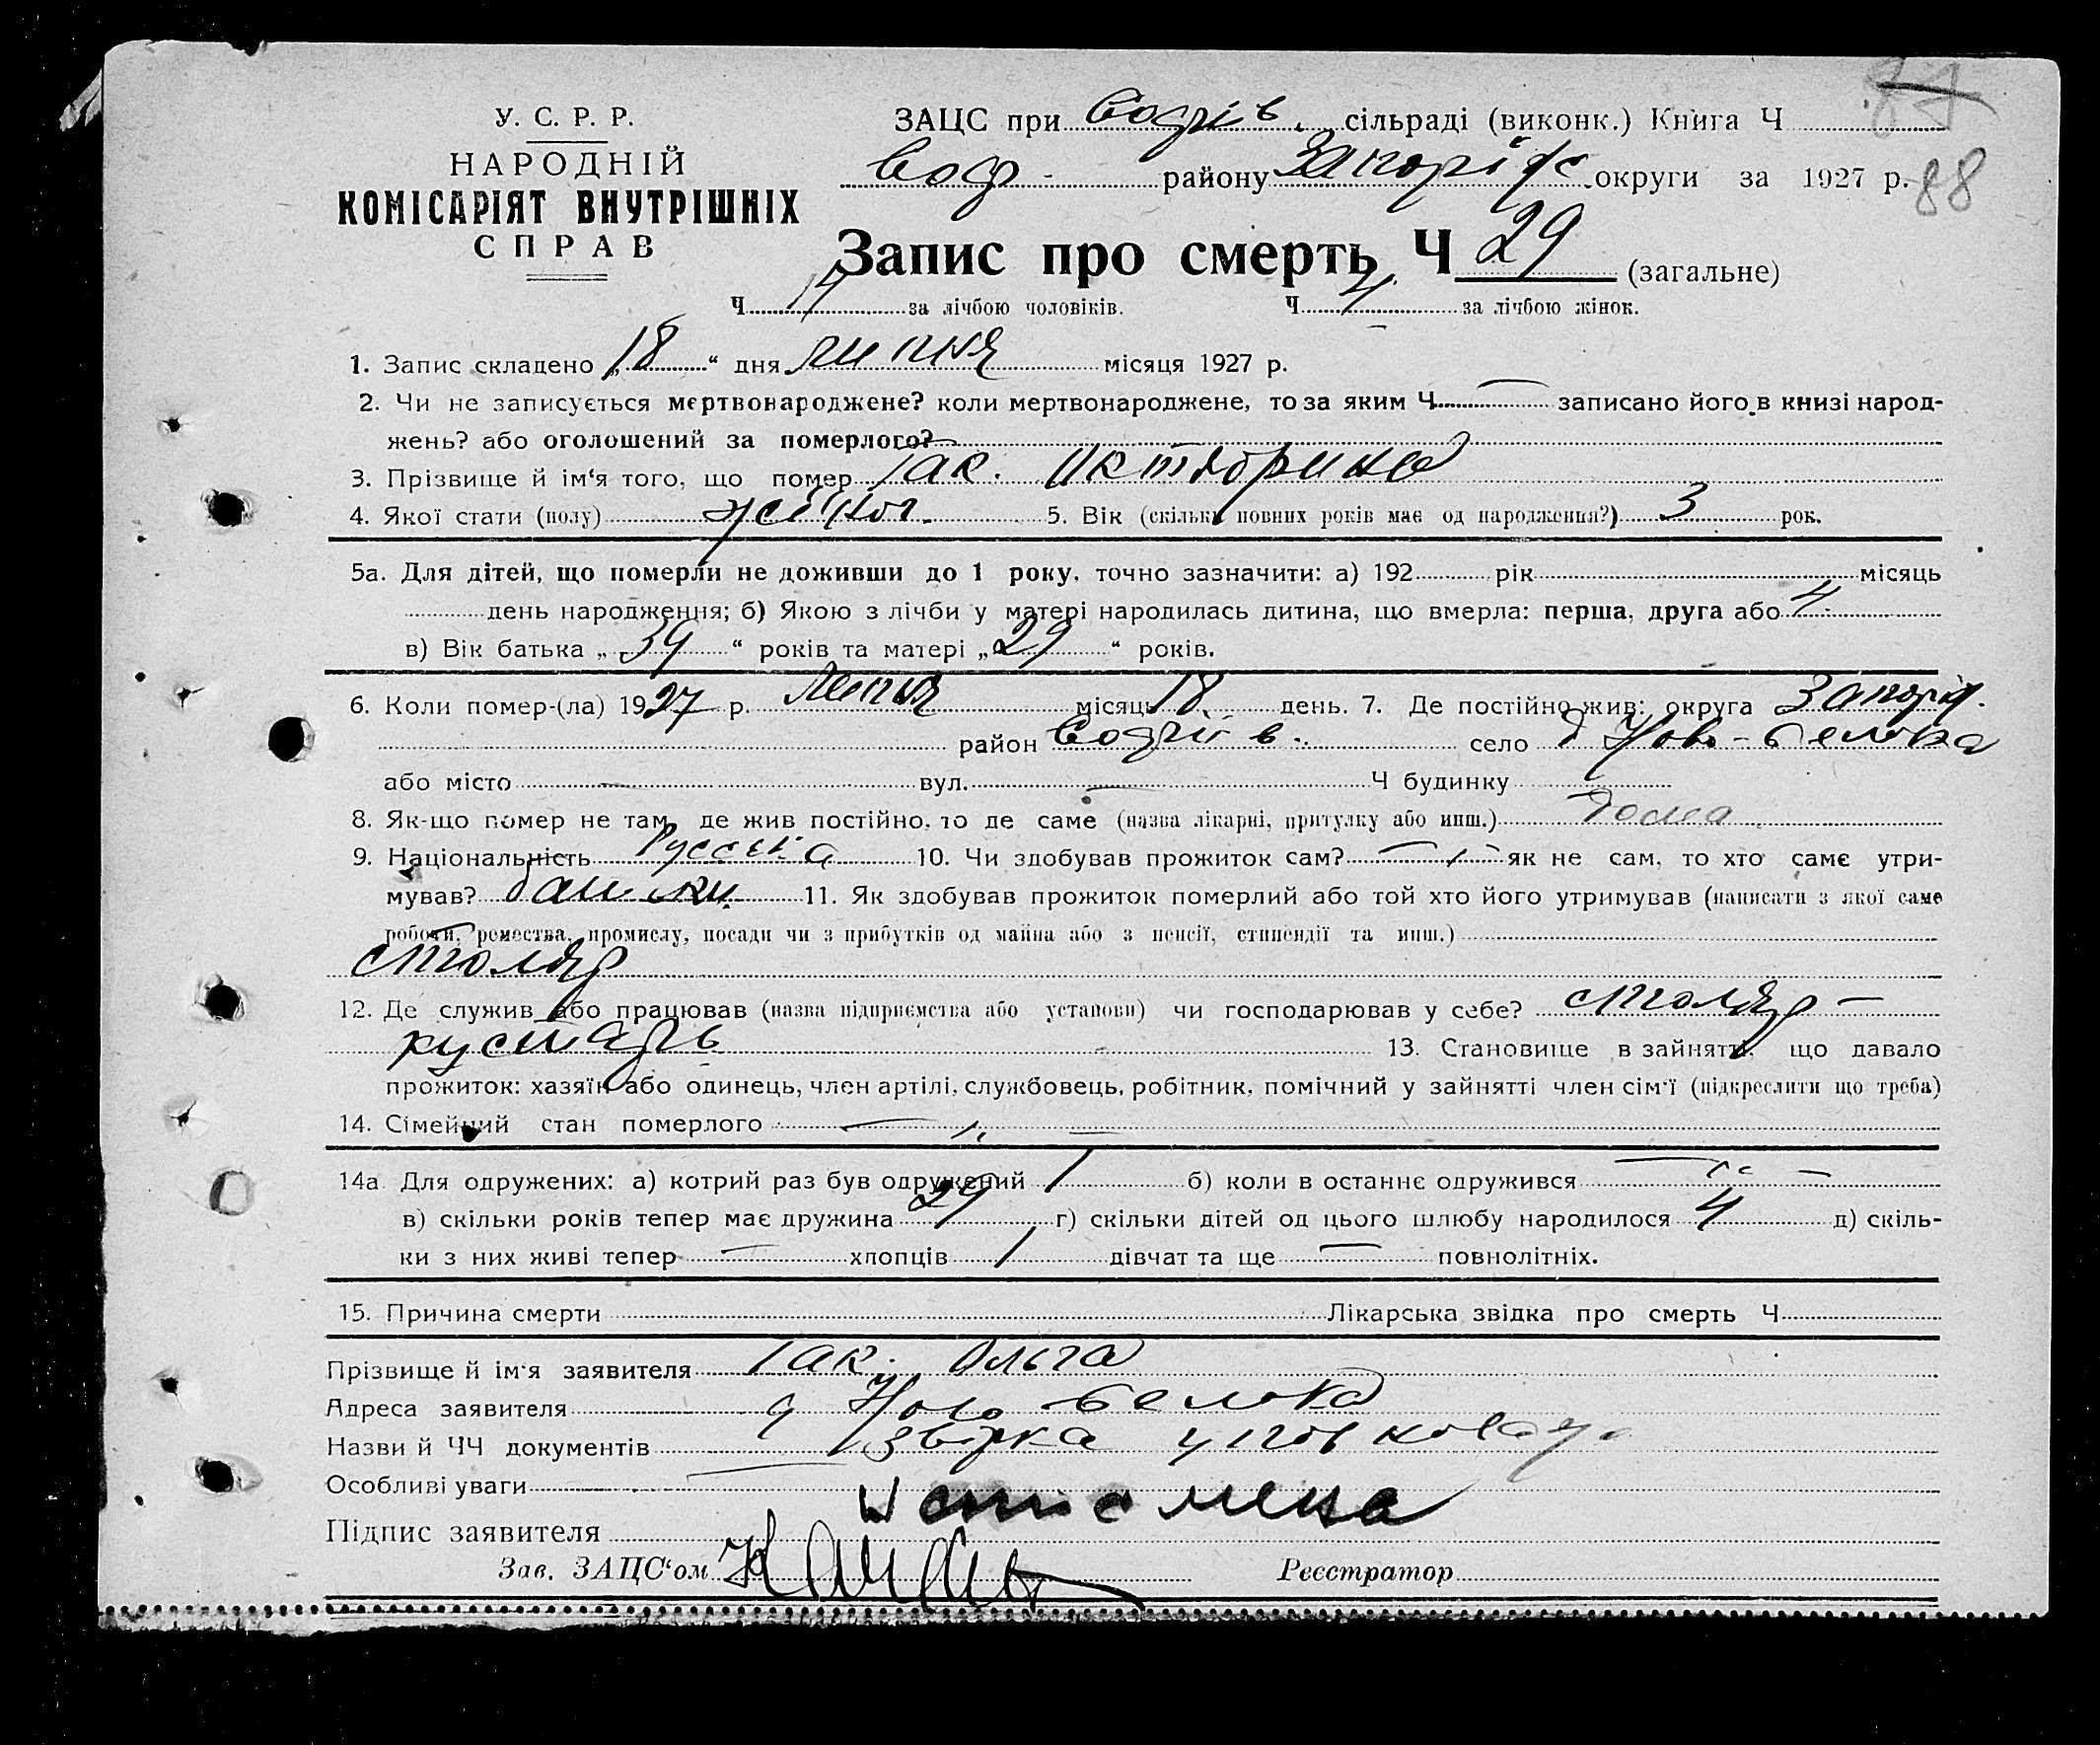 У. С. Р. Р.
НАРОДНІЙ
КОМІСАРІЯТ ВНУТРІШНІХ
СПРАВ
ЗАЦС при Софіїв. сільраді (виконк.) Книга Ч
Соф. району Запоріж. округи за 1927 р. 88
Запис про смерть Ч 29 (загальне)
Ч за лічбою чоловіків. Ч за лічбою жінок.
1. Запис складено „18“ дня липня місяця 1927 р.
2. Чи не записується мертвонароджене? коли мертвонароджене, то за яким Ч — записано його в книзі народ-
жень? або оголошений за померлого?
3. Прізвище й ім‘я того, що помер
4. Якої стати (полу) жіноч. 5. Вік (скільки повних років має од народження?) 3 рок.
5а. Для дітей, що померли не доживши до 1 року, точно зазначити: а) 192 рік місяць
день народження; б) Якою з лічби у матері народилась дитина, що вмерла: перша, друга або 4
в) Вік батька „34“ років та матері „29“ років.
6. Коли помер-(ла) 1927 р. липня місяць 18 день. 7. Де постійно жив: округа Запоріж.
район Софіїв. село
або місто — вул. — Ч будинку —
8. Як-що помер не там, де жив постійно, то де саме (назва лікарні, притулку або инш.) дома
9. Національність 10. Чи здобував прожиток сам? — як не сам, то хто саме утри-
мував? батьки 11. Як здобував прожиток померлий або той хто його утримував (написати з якої саме
роботи, ремества, промислу, посади чи з прибутків од майна або з пенсії, стипендії та инш.)
столяр
12. Де служив або працював (назва підприємства або установи) чи господарював у себе? столяр —
кустарь 13. Становище в зайнятті, що давало
прожиток: хазяїн або одинець, член артілі, службовець, робітник, помічний у зайнятті член сім‘ї (підкреслити що треба)
14. Сімейний стан померлого — „ —
14а. Для одружених: а) котрий раз був одружений 1 б) коли в останнє одружився —
в) скільки років тепер має дружина 29 г) скільки дітей од цього шлюбу народилося 4 д) скіль-
ки з них живі тепер — хлопців 1 дівчат та ще — повнолітніх.
15. Причина смерти Лікарська звідка про смерть Ч
Прізвище й ім‘я заявителя Ольга
Адреса заявителя
Назви й ЧЧ документів
Особливі уваги
Підпис заявителя
Зав. ЗАЦС‘ом Реєстратор